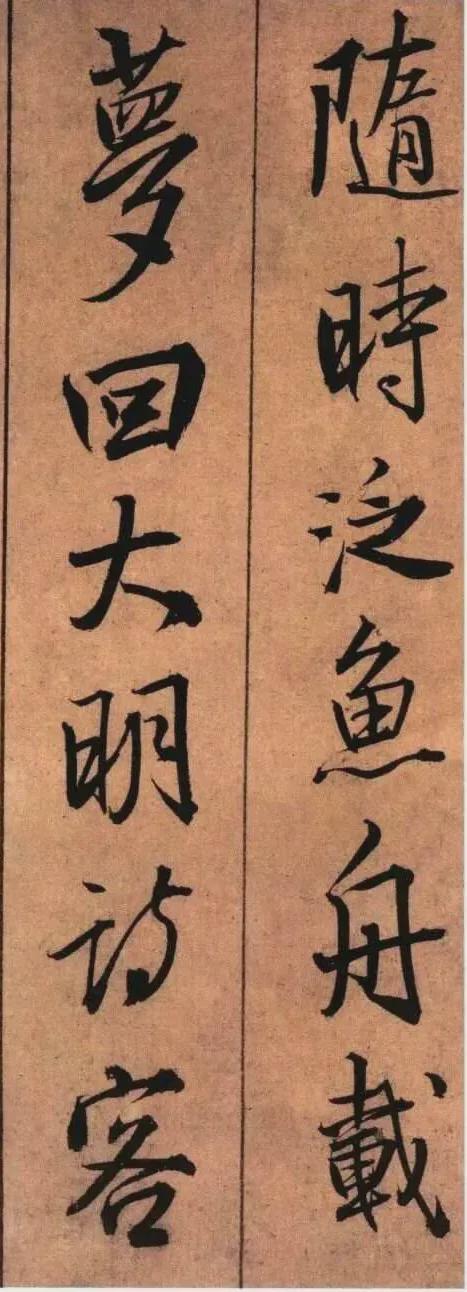 隨時泛魚舟載
夢回大明詩客